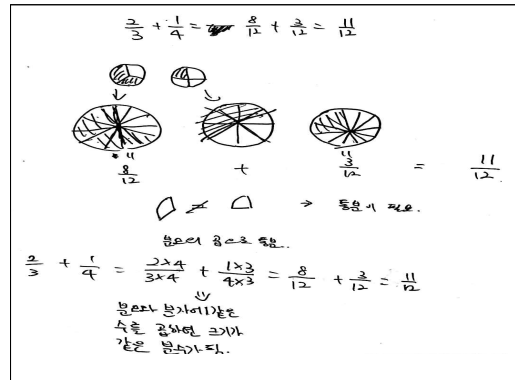 2/3 + 1/4 = 8/12 + 3/12 = 11/12
8/12 + 3/12 = 11/12
≠ → 통분이 필요.
분모의 곱으로 통분.
2/3 + 1/4 = 2×4/3×4 + 1×3/4×3 = 8/12 + 3/12 = 11/12
분모와 분자에 같은
수를 곱하면 크기가
같은 분수가 됨.